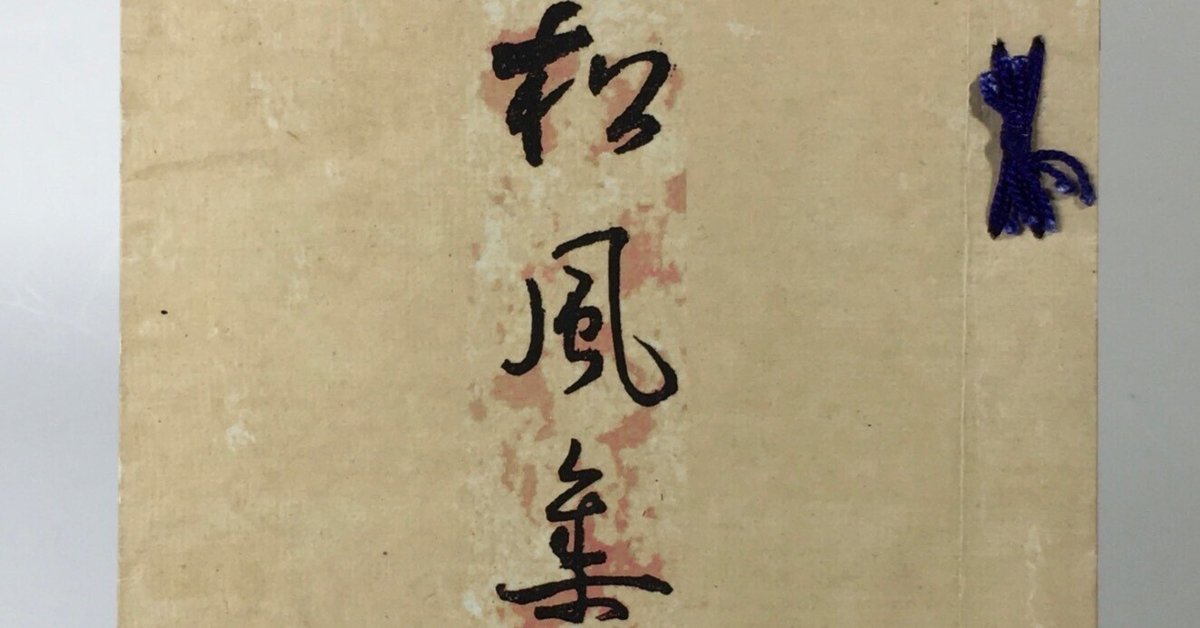 松風集